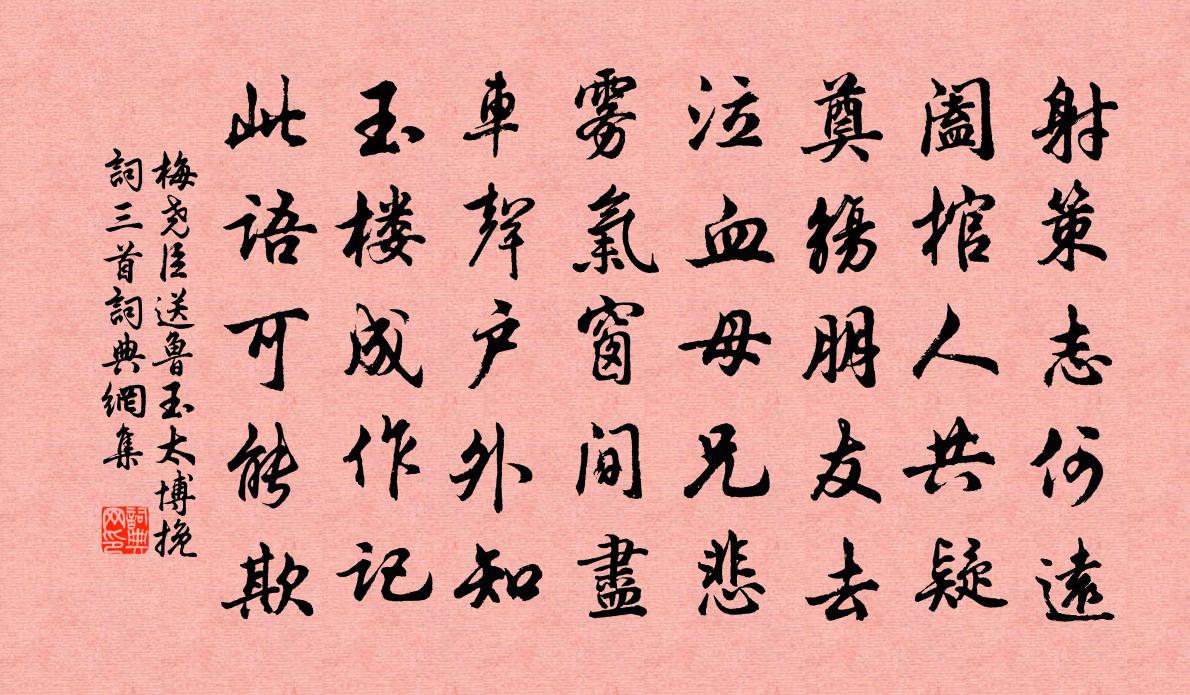 射策志何遠
阖棺人共疑
奠觞朋友去
泣血母兄悲
雾氣窗間盡
車聲户外知
玉楼成作記
此語可能欺
梅尧臣送鲁玉太博挽
詞三首詞典網集
詞典网印